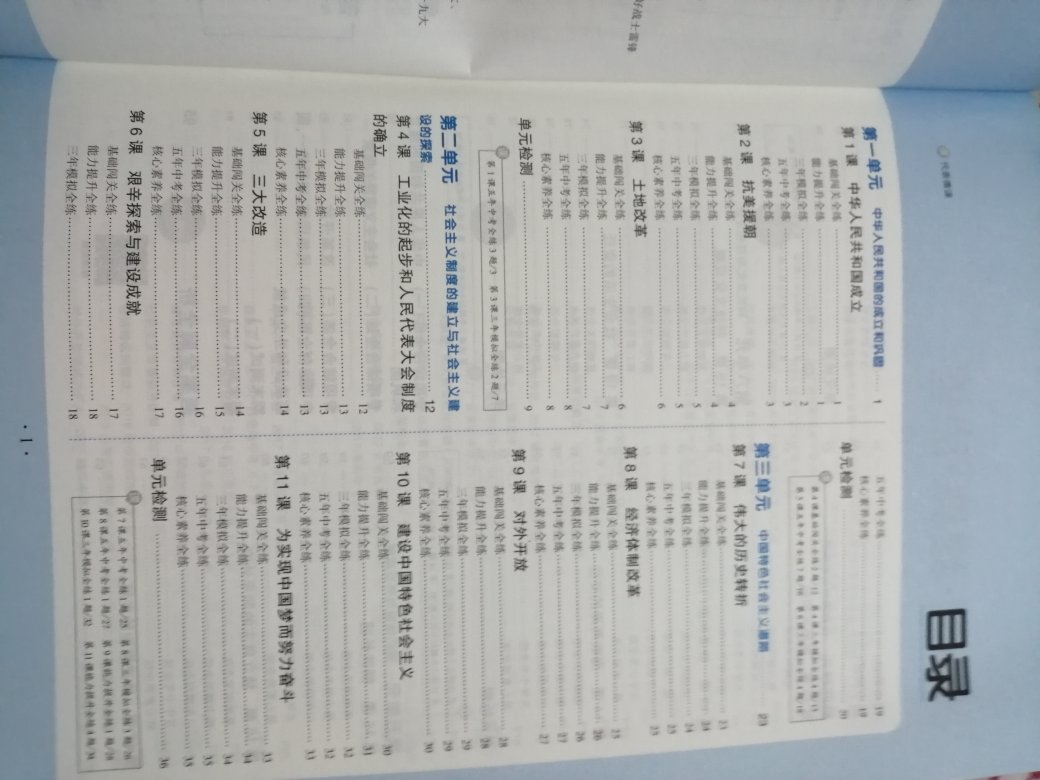 目录
第一单元 中华人民共和国的成立和巩固 1
第1课 中华人民共和国成立
基础闯关全练 1
能力提升全练 1
三年模拟全练 2
五年中考全练 3
核心素养全练 3
第2课 抗美援朝
基础闯关全练 4
能力提升全练 4
三年模拟全练 5
五年中考全练 5
核心素养全练 6
第3课 土地改革
基础闯关全练 6
能力提升全练 7
三年模拟全练 7
五年中考全练 8
核心素养全练 8
单元检测 9
第1课五年中考全练3题/3 第3课三年模拟全练2题/7
第二单元 社会主义制度的建立与社会主义建
设的探索 12
第4课 工业化的起步和人民代表大会制度
的确立
基础闯关全练 12
能力提升全练 13
三年模拟全练 13
五年中考全练 13
核心素养全练 14
第5课 三大改造
基础闯关全练 14
能力提升全练 15
三年模拟全练 16
五年中考全练 16
核心素养全练 17
第6课 艰辛探索与建设成就
基础闯关全练 17
能力提升全练 18
三年模拟全练 18
五年中考全练 19
核心素养全练 19
单元检测 20
第三单元 中国特色社会主义道路 23
第7课 伟大的历史转折
基础闯关全练 23
能力提升全练 24
三年模拟全练 24
五年中考全练 25
核心素养全练 25
第8课 经济体制改革
基础闯关全练 25
能力提升全练 26
三年模拟全练 26
五年中考全练 27
核心素养全练 27
第9课 对外开放
基础闯关全练 28
能力提升全练 28
三年模拟全练 29
五年中考全练 29
核心素养全练 30
第10课 建设中国特色社会主义
基础闯关全练 30
能力提升全练 31
三年模拟全练 32
五年中考全练 32
核心素养全练 33
第11课 为实现中国梦而努力奋斗
基础闯关全练 33
能力提升全练 34
三年模拟全练 34
五年中考全练 35
核心素养全练 35
单元检测 36
第7课五年中考全练1题/25 第8课三年模拟全练3题/26
第8课五年中考全练1题/27 第9课能力提升全练1题/28
第10课三年模拟全练1题/32 第11课能力提升全练4题/34
·1·
好战士雷锋
十九大